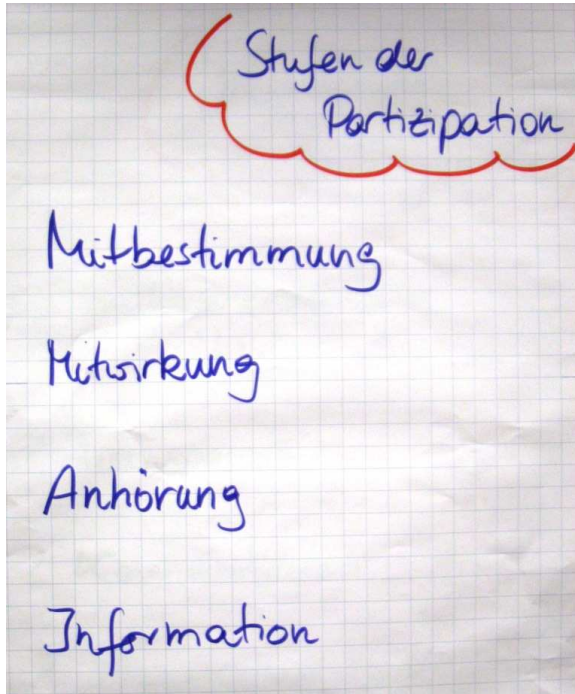 Stufen der
Partizipation
Mitbestimmung
Mitwirkung
Anhörung
Information